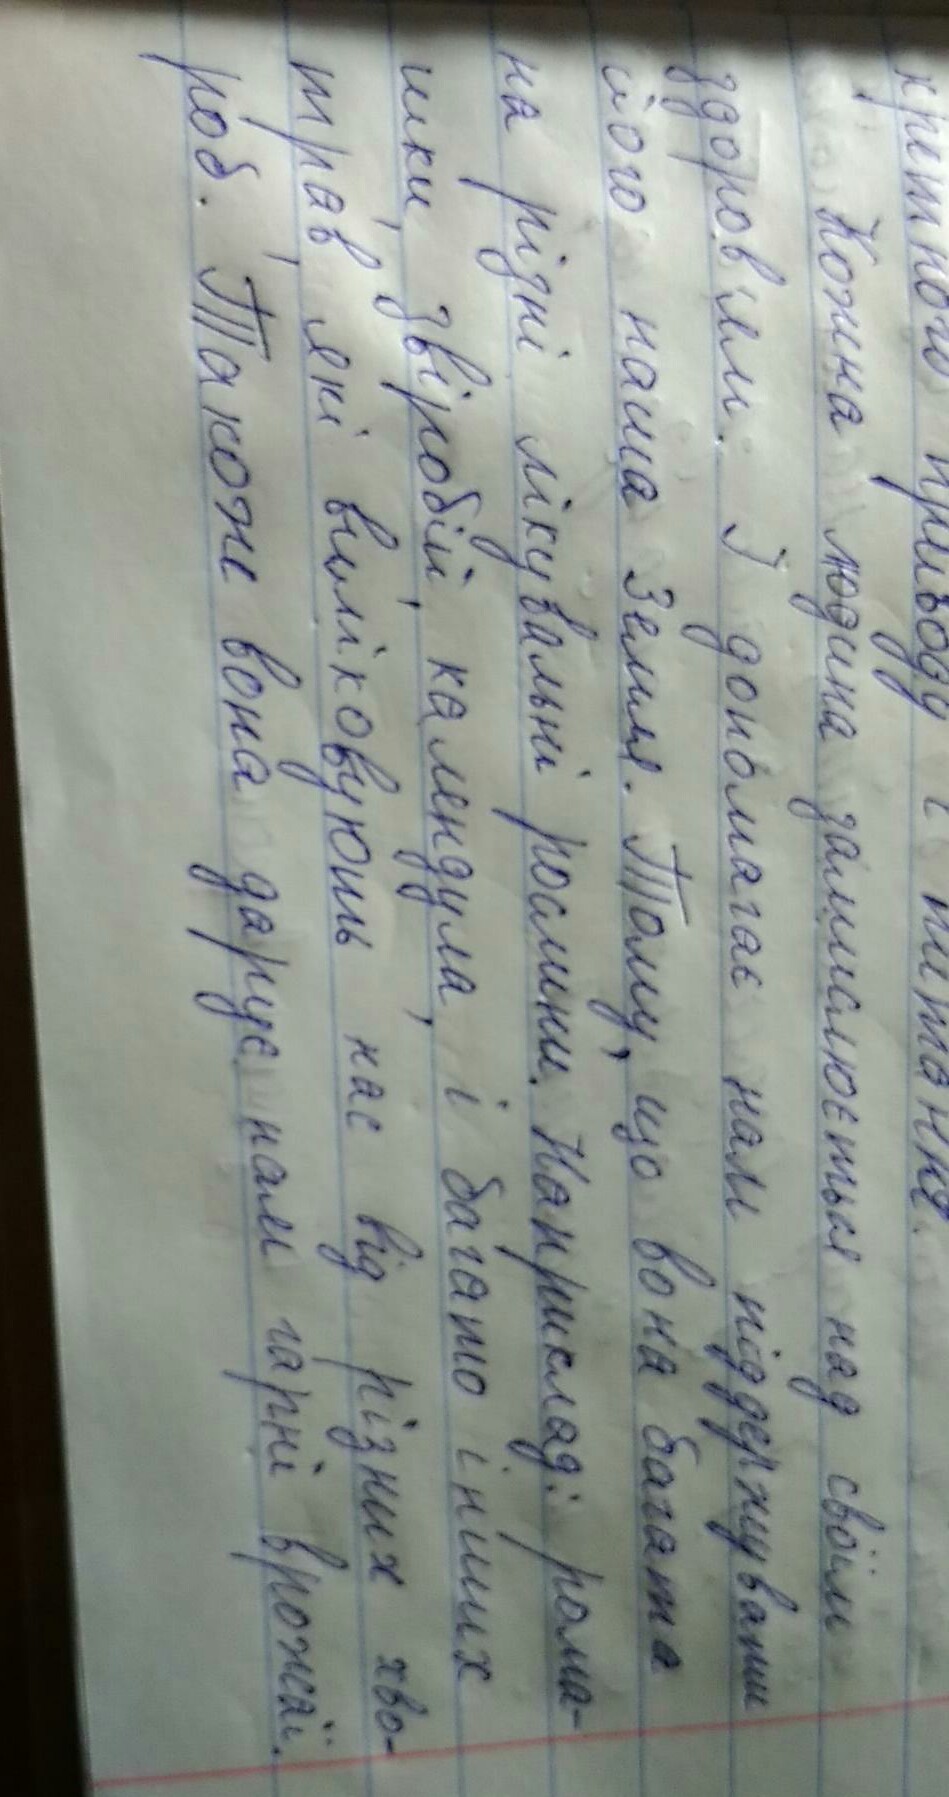 природу і питання.
Кожна людина замислюється над своїм
здоров'ям. І допомагає нам піддержувати
його наша Земля. Тому, що вона багата
на різні лікувальні рослини. Наприклад: рома-
шки, звіробій, календула, і багато інших
трав, які виліковують нас від різних хво-
роб. Також вона дарує нам гарні врожаї.